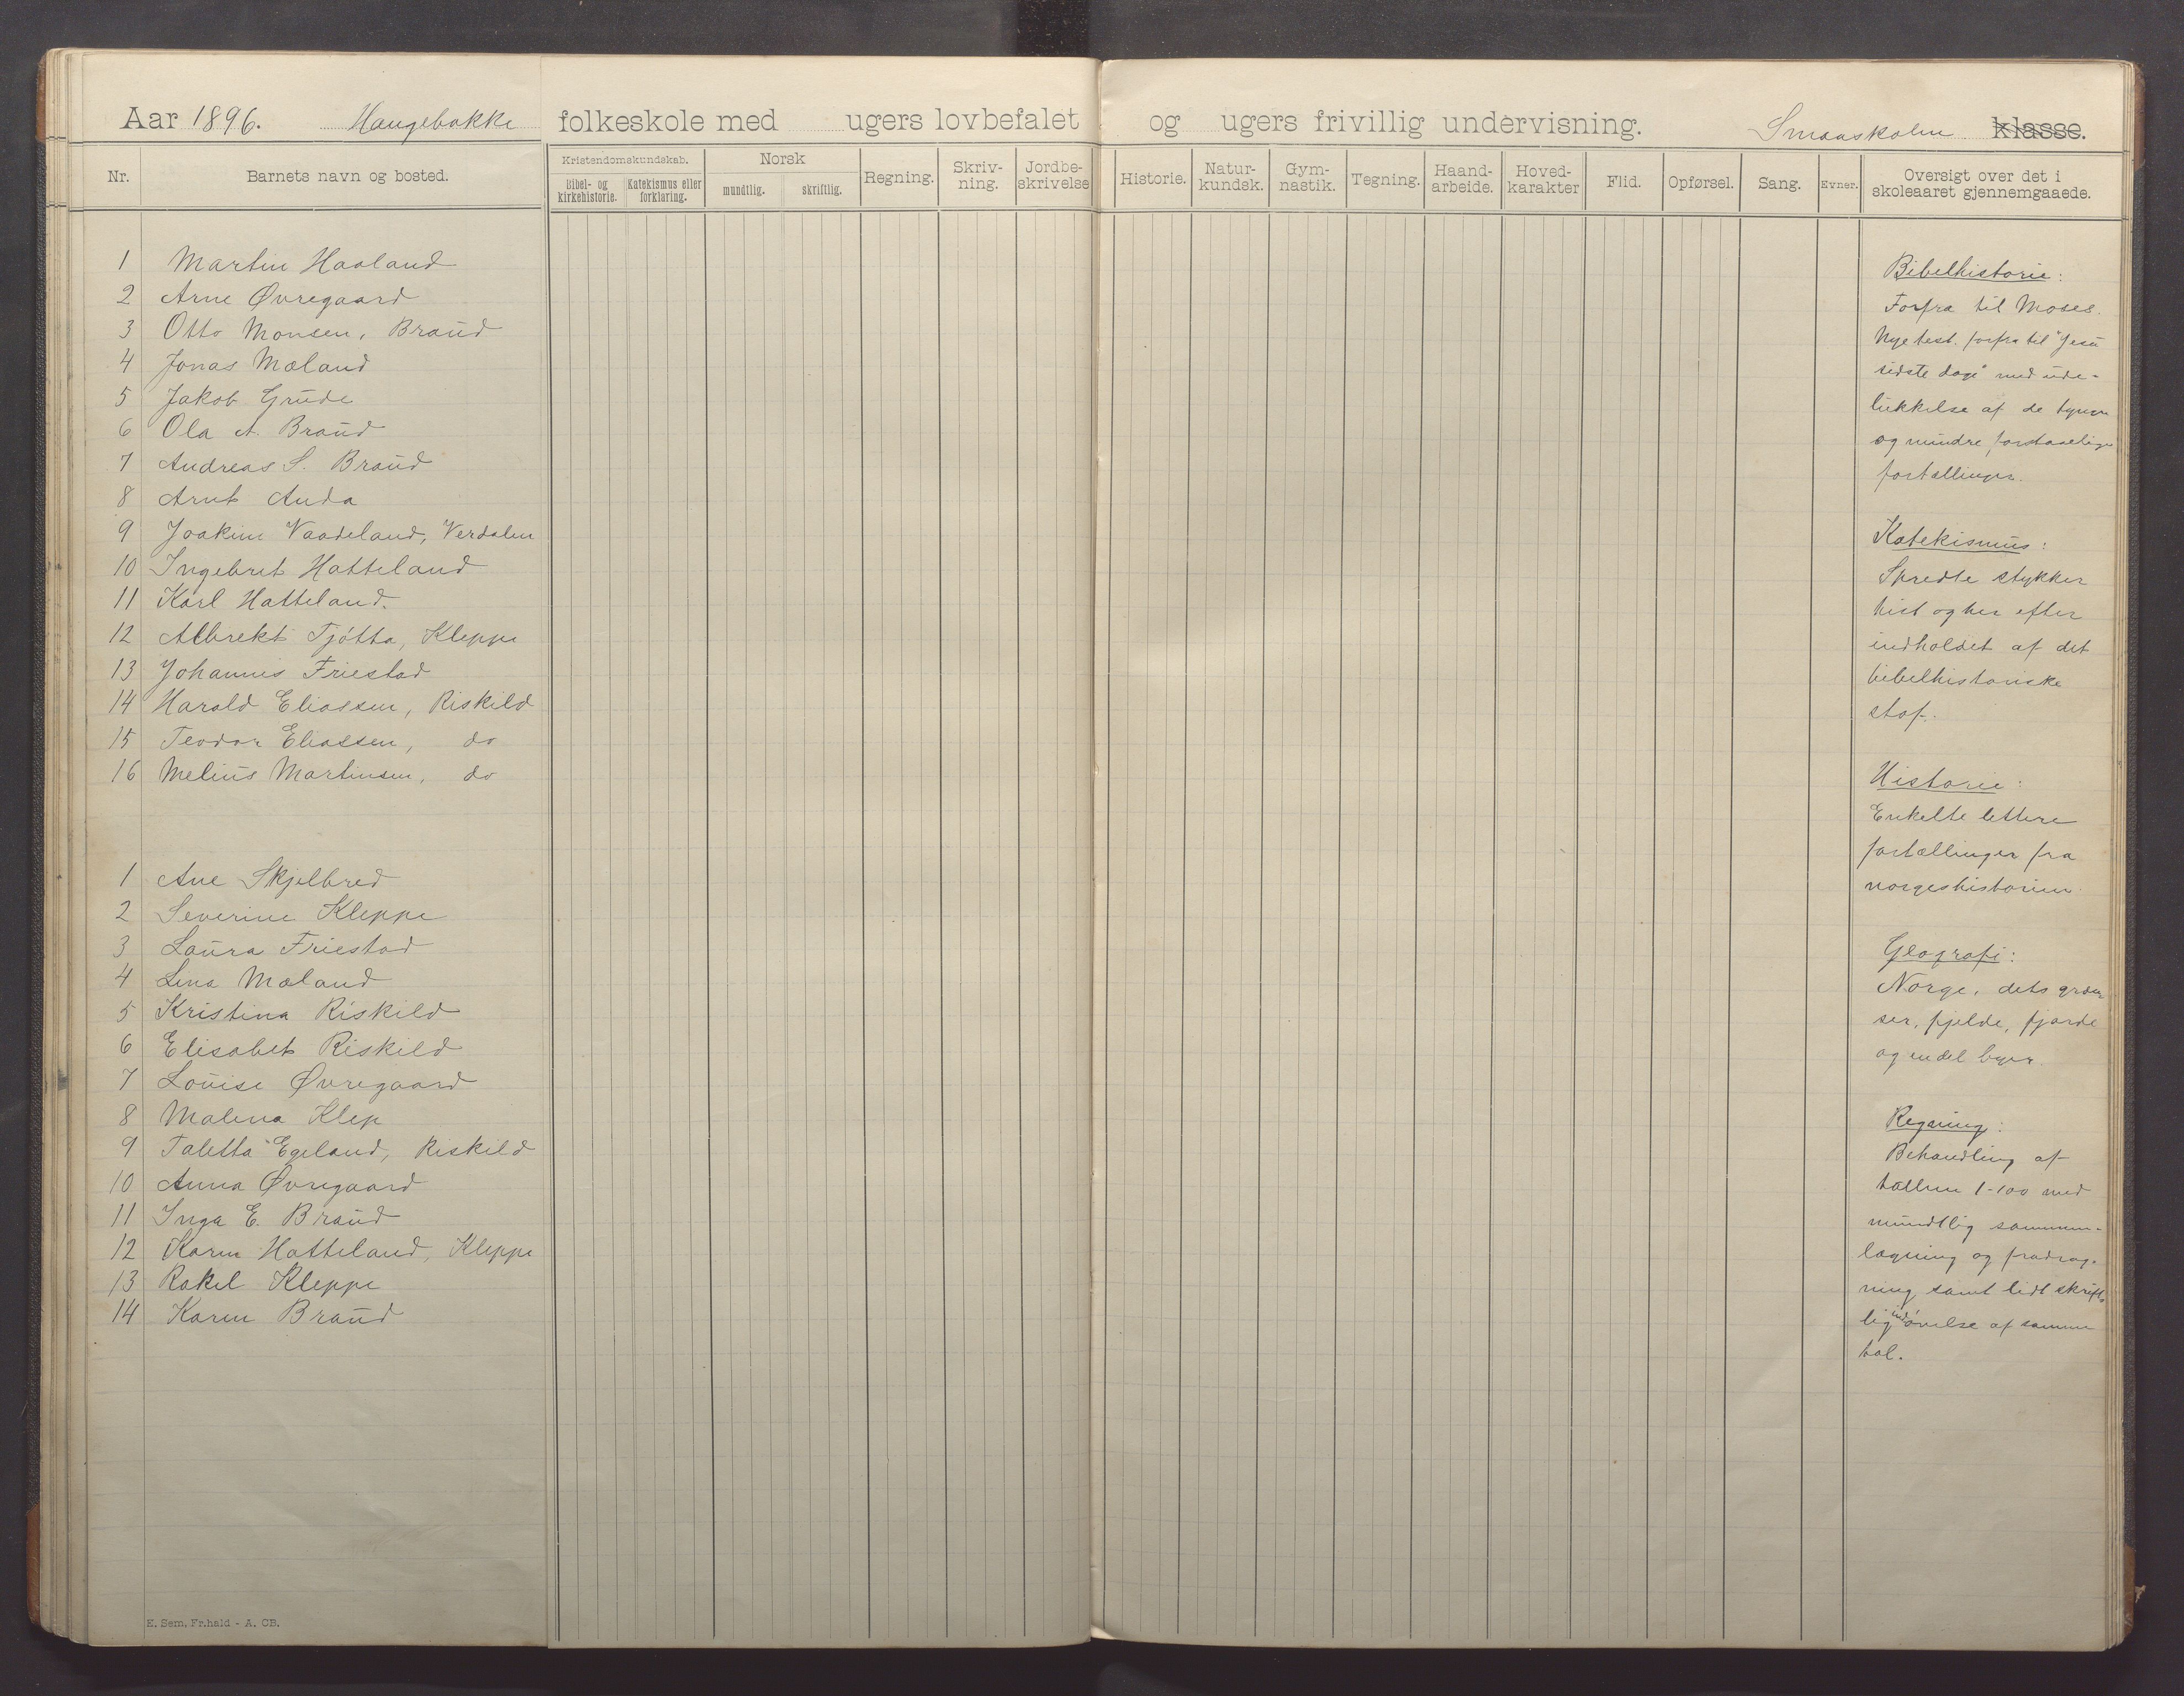 Aar 1896. Haugebakke folkeskole med ugers lovbefalet og ugers frivillig undervisning. Smaaskolen klasse.
Nr.
Barnets navn og bosted.
Kristendomskundskab.
Bibel- og kirkehistorie.
Katekismus eller forklaring.
Norsk
mundtlig.
skriftlig.
Regning.
Skriv-
ning.
Jordbe-
skrivelse
Historie.
Natur-
kundsk.
Gym-
nastik.
Tegning.
Haand-
arbeide.
Hoved-
karakter
Flid.
Opførsel.
Sang.
Evner.
Oversigt over det i
skoleaaret gjennemgaaede.
1 Martin Haaland
2 Arne Øvregaard
3 Otto Monsen, Braud
4 Jonas Mæland
5 Jakob Grude
6 Ola A. Braud
7 Andreas S. Braud
8 Arnt Anda
9 Joakim Vaadeland, Verdalen
10 Ingebret Hatteland
11 Karl Hatteland.
12 Albrekt Tjøtta, Kleppe
13 Johannes Friestad
14 Harald Eliassen, Riskild
15 Teodor Eliassen, do
16 Melius Martinsen, do
1 Ane Skjelbred
2 Severine Kleppe
3 Laura Friestad
4 Lina Mæland
5 Kristina Riskild
6 Elisabet Riskild
7 Louise Øvregaard
8 Malena Klep
9 Taletta Egeland, Riskild
10 Anna Øvregaard
11 Inga E. Braud
12 Karen Hatteland, Kleppe
13 Rakel Kleppe
14 Karen Braud
Bibelhistorie:
Forfra til Moses.
Nye test. forfra til "Jesu
sidste dage" med ude-
lukkelse af de tyngre
og mindre forstaaelige
fortællinger.
Katekismus:
Spredte stykker
hist og her efter
indholdet af det
bibelhistoriske
stof.
Historie:
Enkelte lettere
fortællinger fra
norgeshistorien.
Geografi:
Norge, dets græn-
ser, fjelde, fjorde
og en del byer.
Regning:
Behandling af
tallene 1-100 med
mundtlig sammen-
lægning og fradrag-
ning samt lidt skrift-
lig indøvelse af samme
tal.
E. Sem, Fr.hald - A. CB.